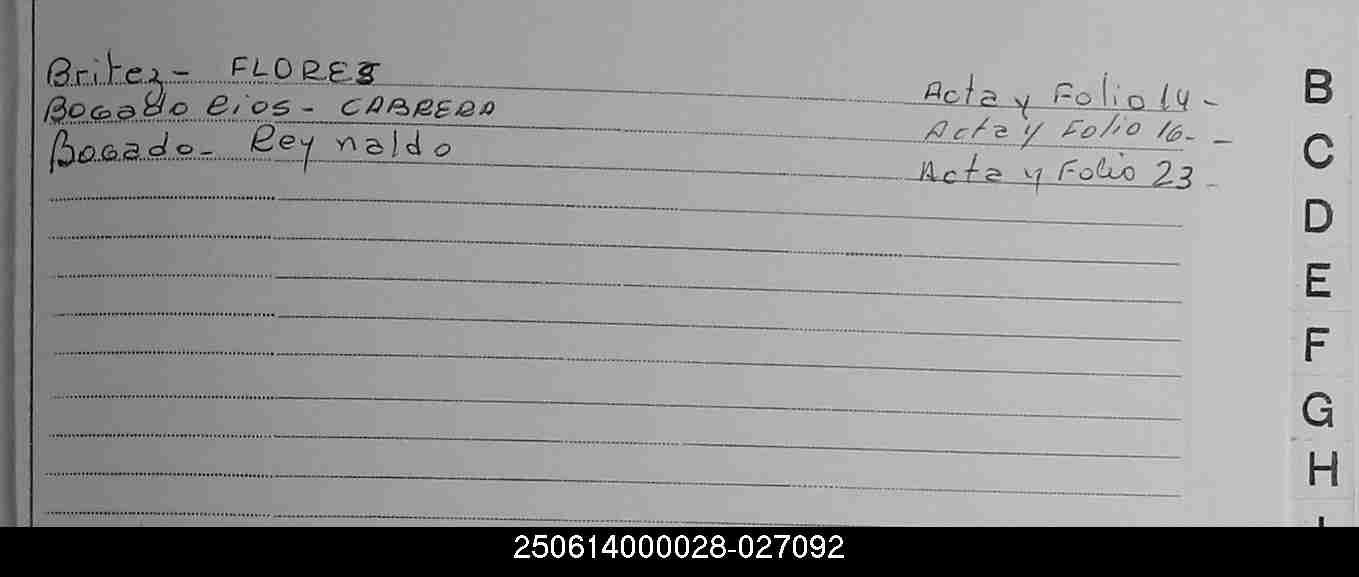 Britez - FLORES Acta y Folio 14 -
Bogado Rios - CABRERA Acta y Folio 16 - -
Bogado - Reynaldo Acta y Folio 23 -
B
C
D
E
F
G
H
250614000028-027092